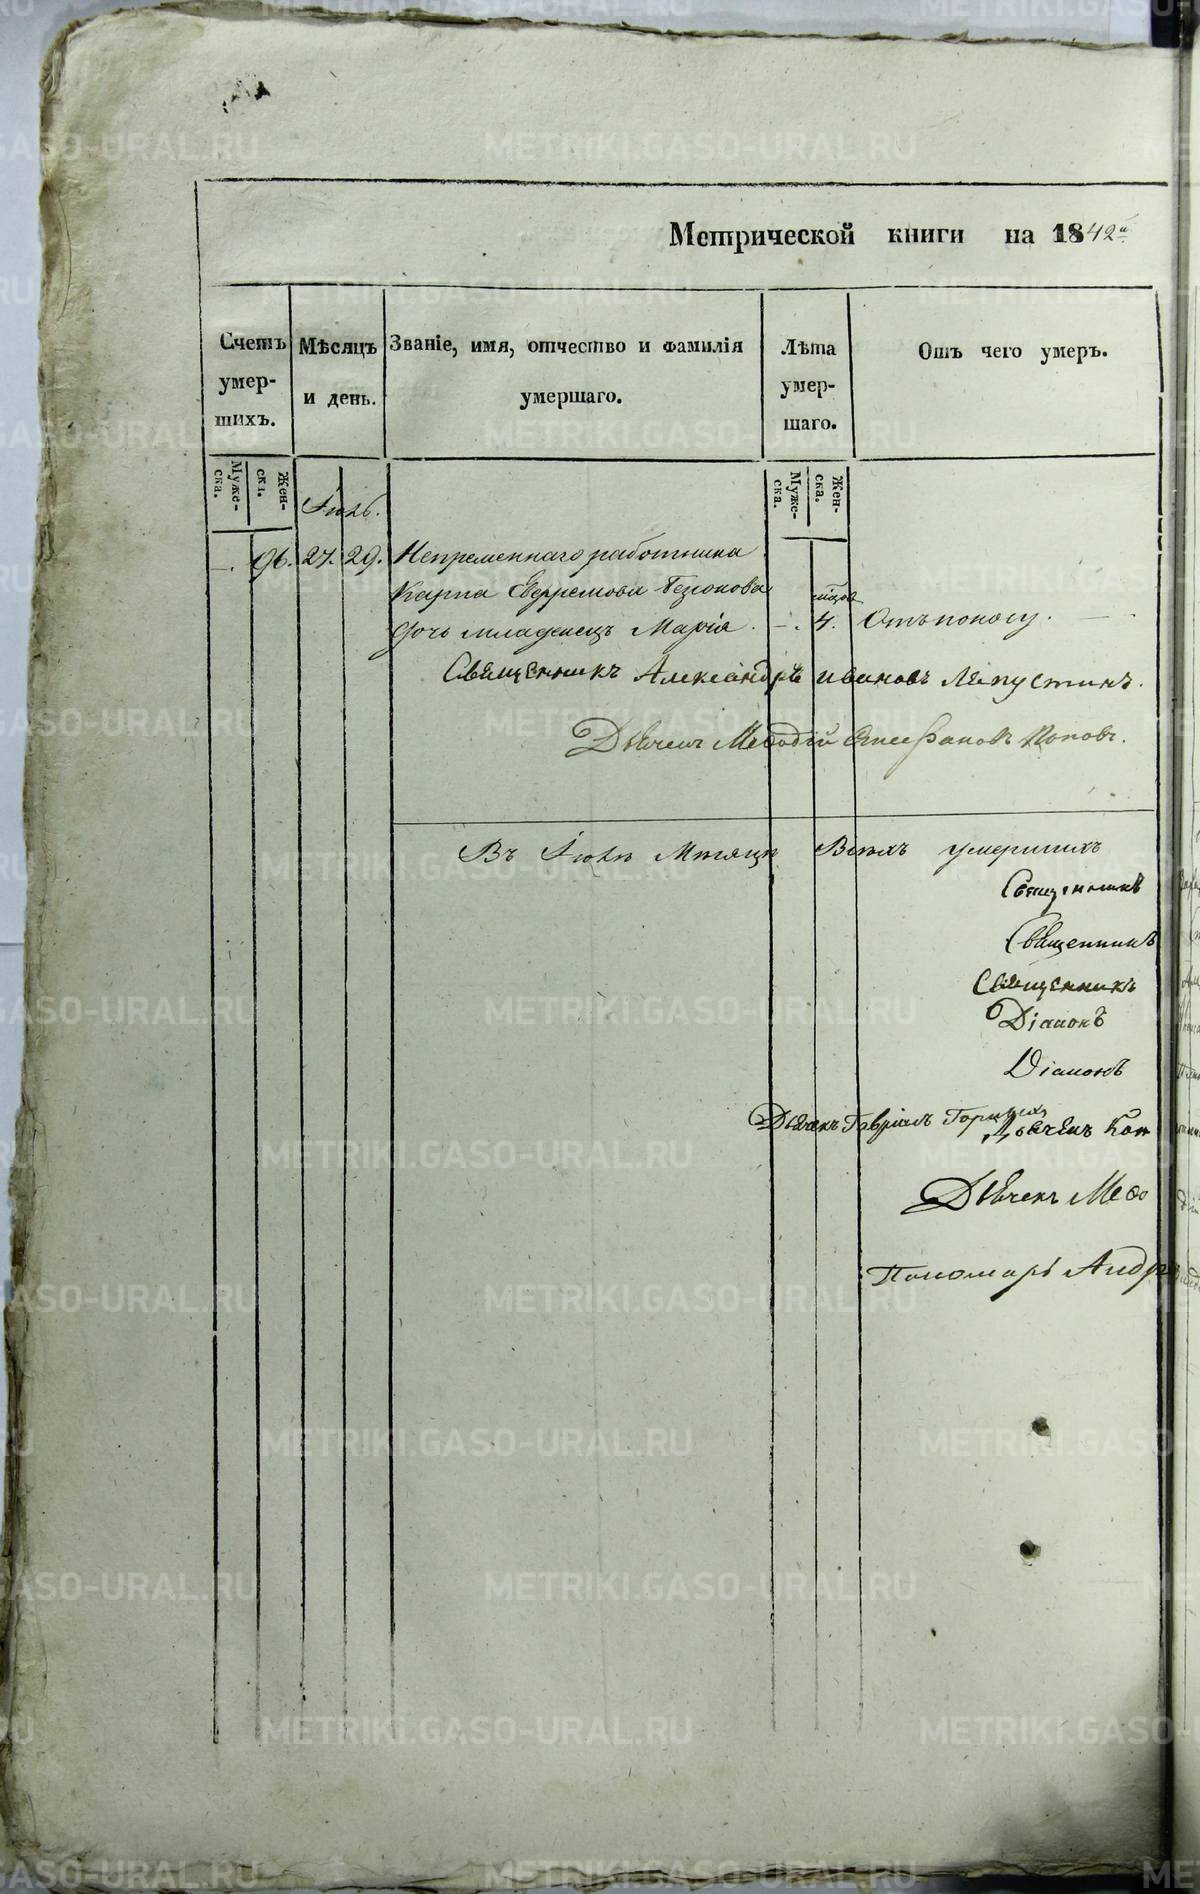 Метрической книги на 1842й
Счетъ умершихъ.
Мѣсяцъ и день.
Званіе, имя, отчество и фамилія умершаго.
Лѣта умершаго.
Отъ чего умеръ.
Мужеска.
Женска.
Мужеска.
Женска.
Іюль.
—. 96. 27. 29. Непременнаго работника
Карпа Ефремова
дочь младенецъ Марія. —. 4. Отъ поносу.
Священникъ Александръ Ивановъ Ляпустинъ.
Дьячекъ Меѳодій Стефановъ Поповъ.
Въ Іюлѣ Мѣсяцѣ Всѣхъ умершихъ
Священникъ
Священникъ
Священникъ
Діаконъ
Діаконъ
Дьячекъ Гавріилъ
Дьячекъ Кон
Дьячекъ Меѳо
Пономарь Андр
METRIKI.GASO-URAL.RU